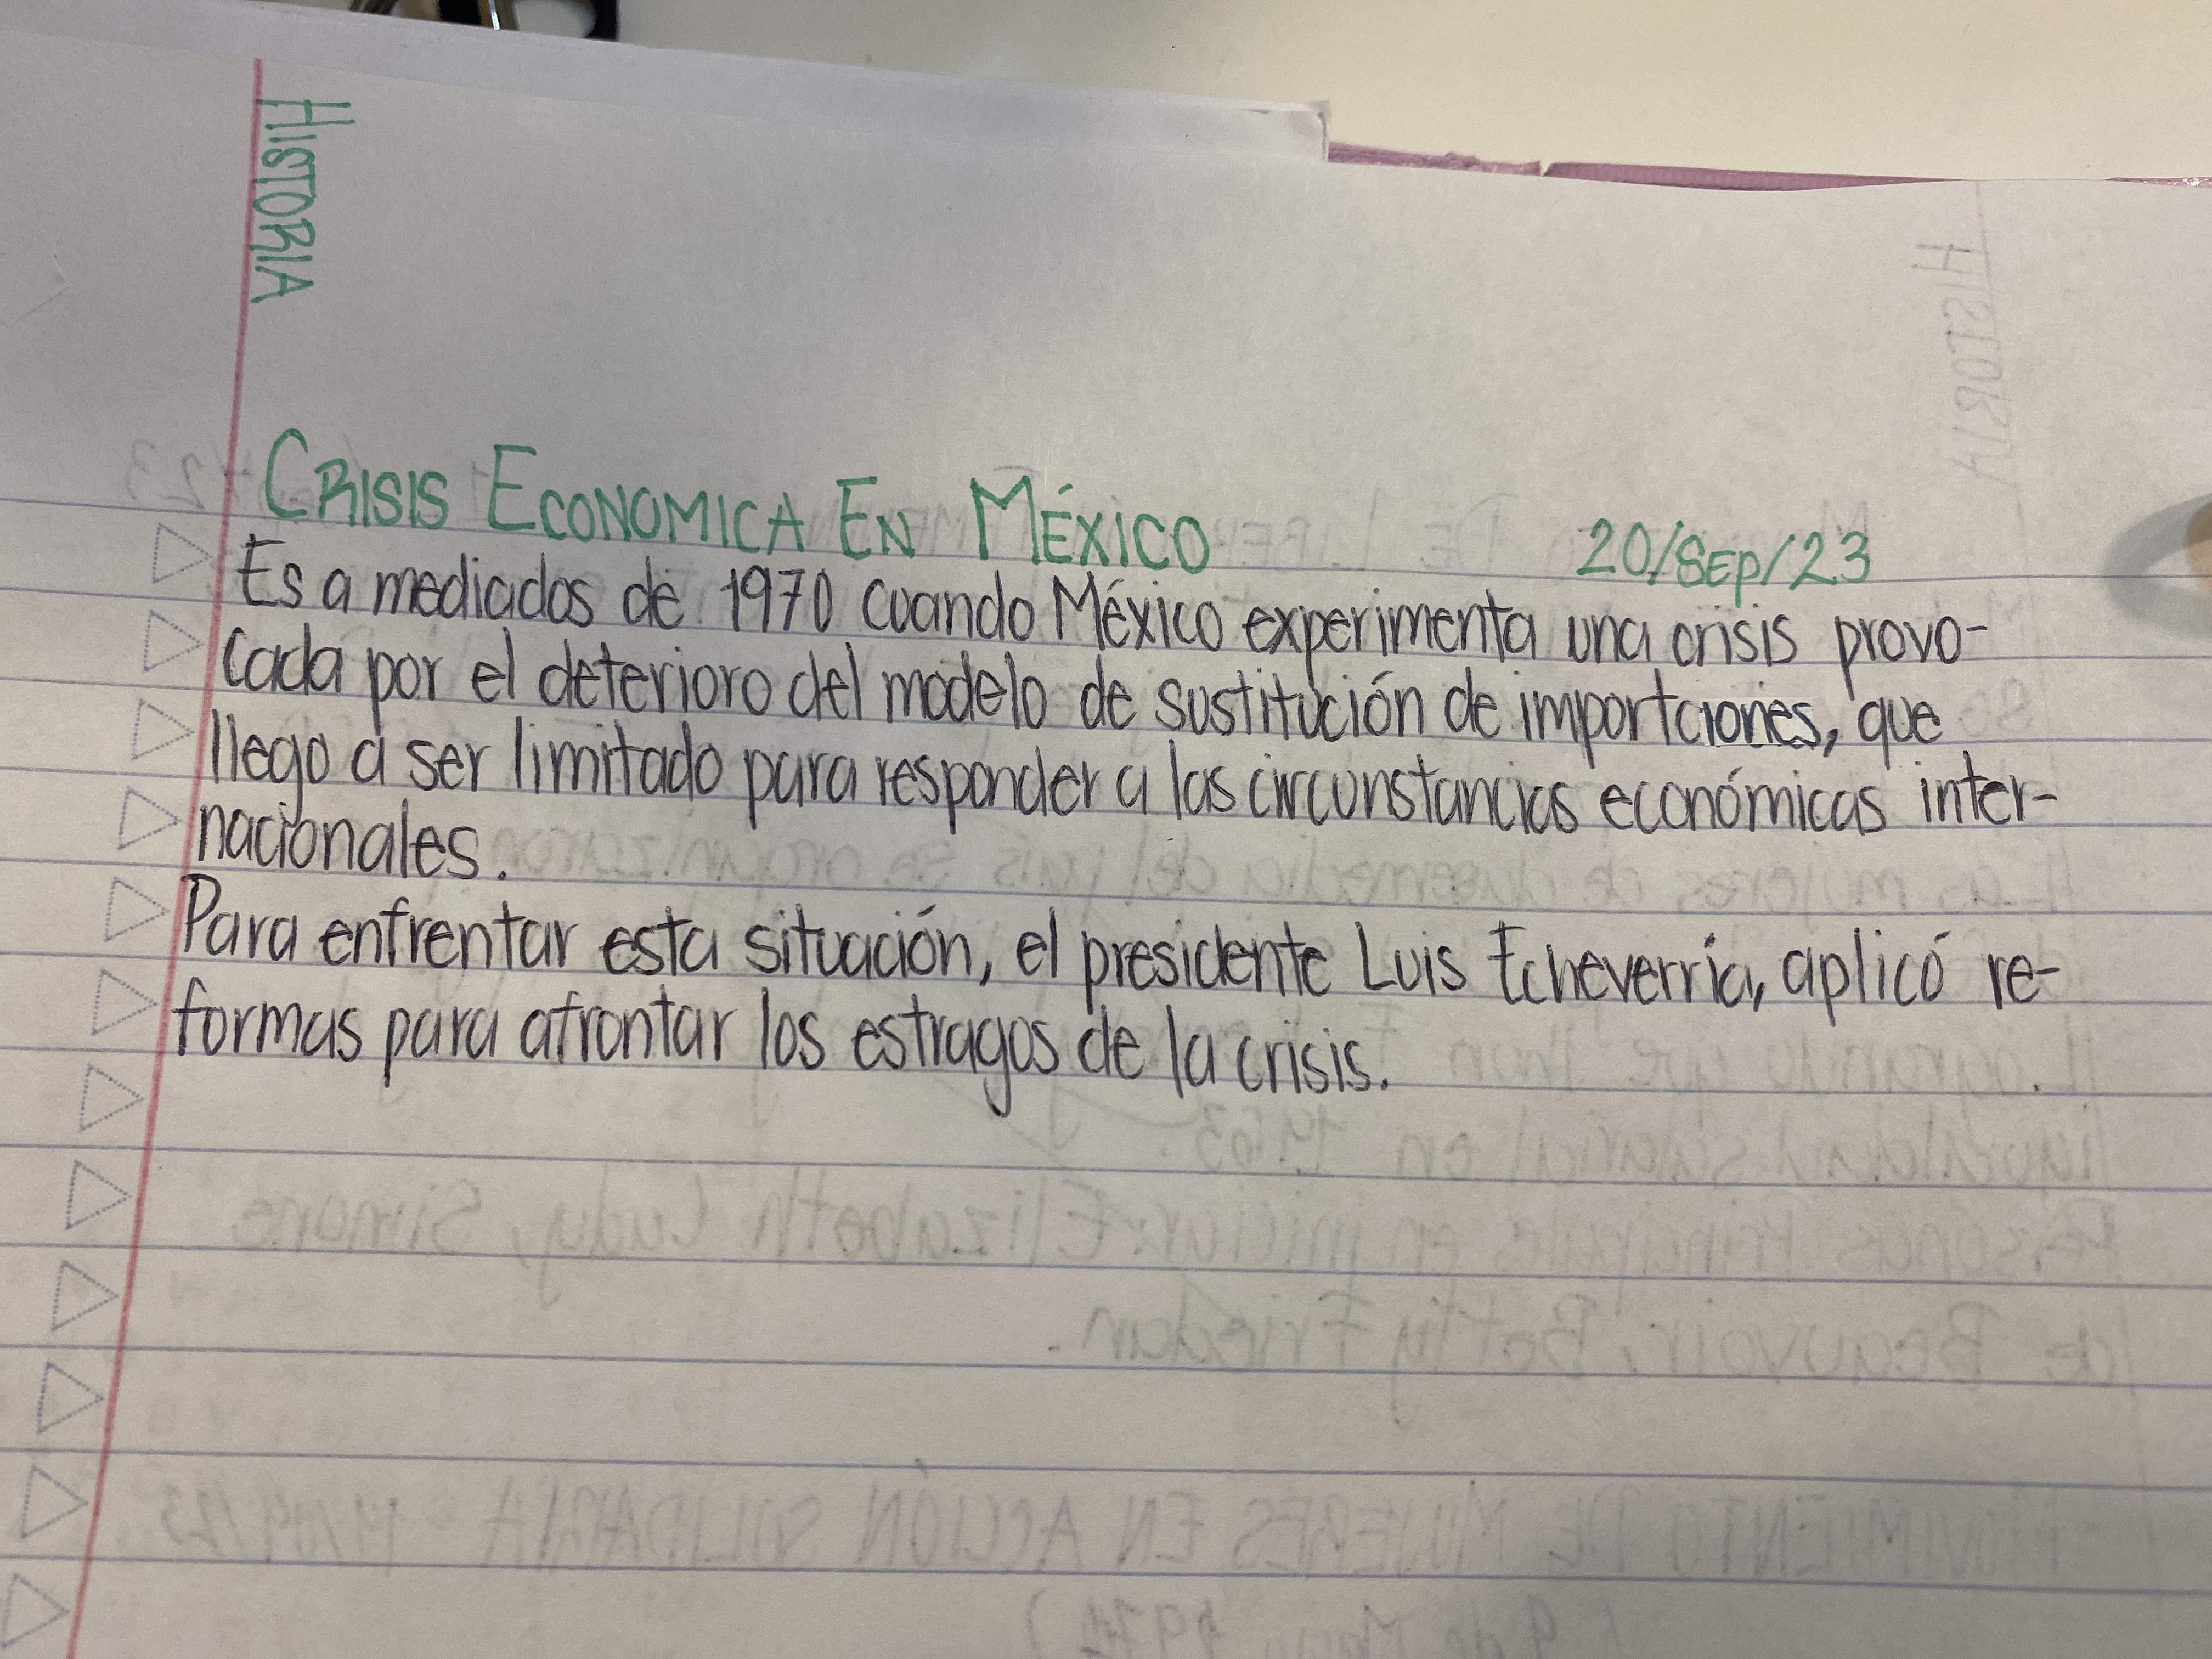 HISTORIA
CRISIS ECONOMICA EN MÉXICO 20/SEP/23
Es a mediados de 1970 cuando México experimenta una crisis provo-
cada por el deterioro del modelo de sustitución de importciones, que
llego a ser limitado para responder a las circunstancias económicas inter-
nacionales.
Para enfrentar esta situación, el presidente Luis Echeverría, aplicó re-
formas para afrontar los estragos de la crisis.